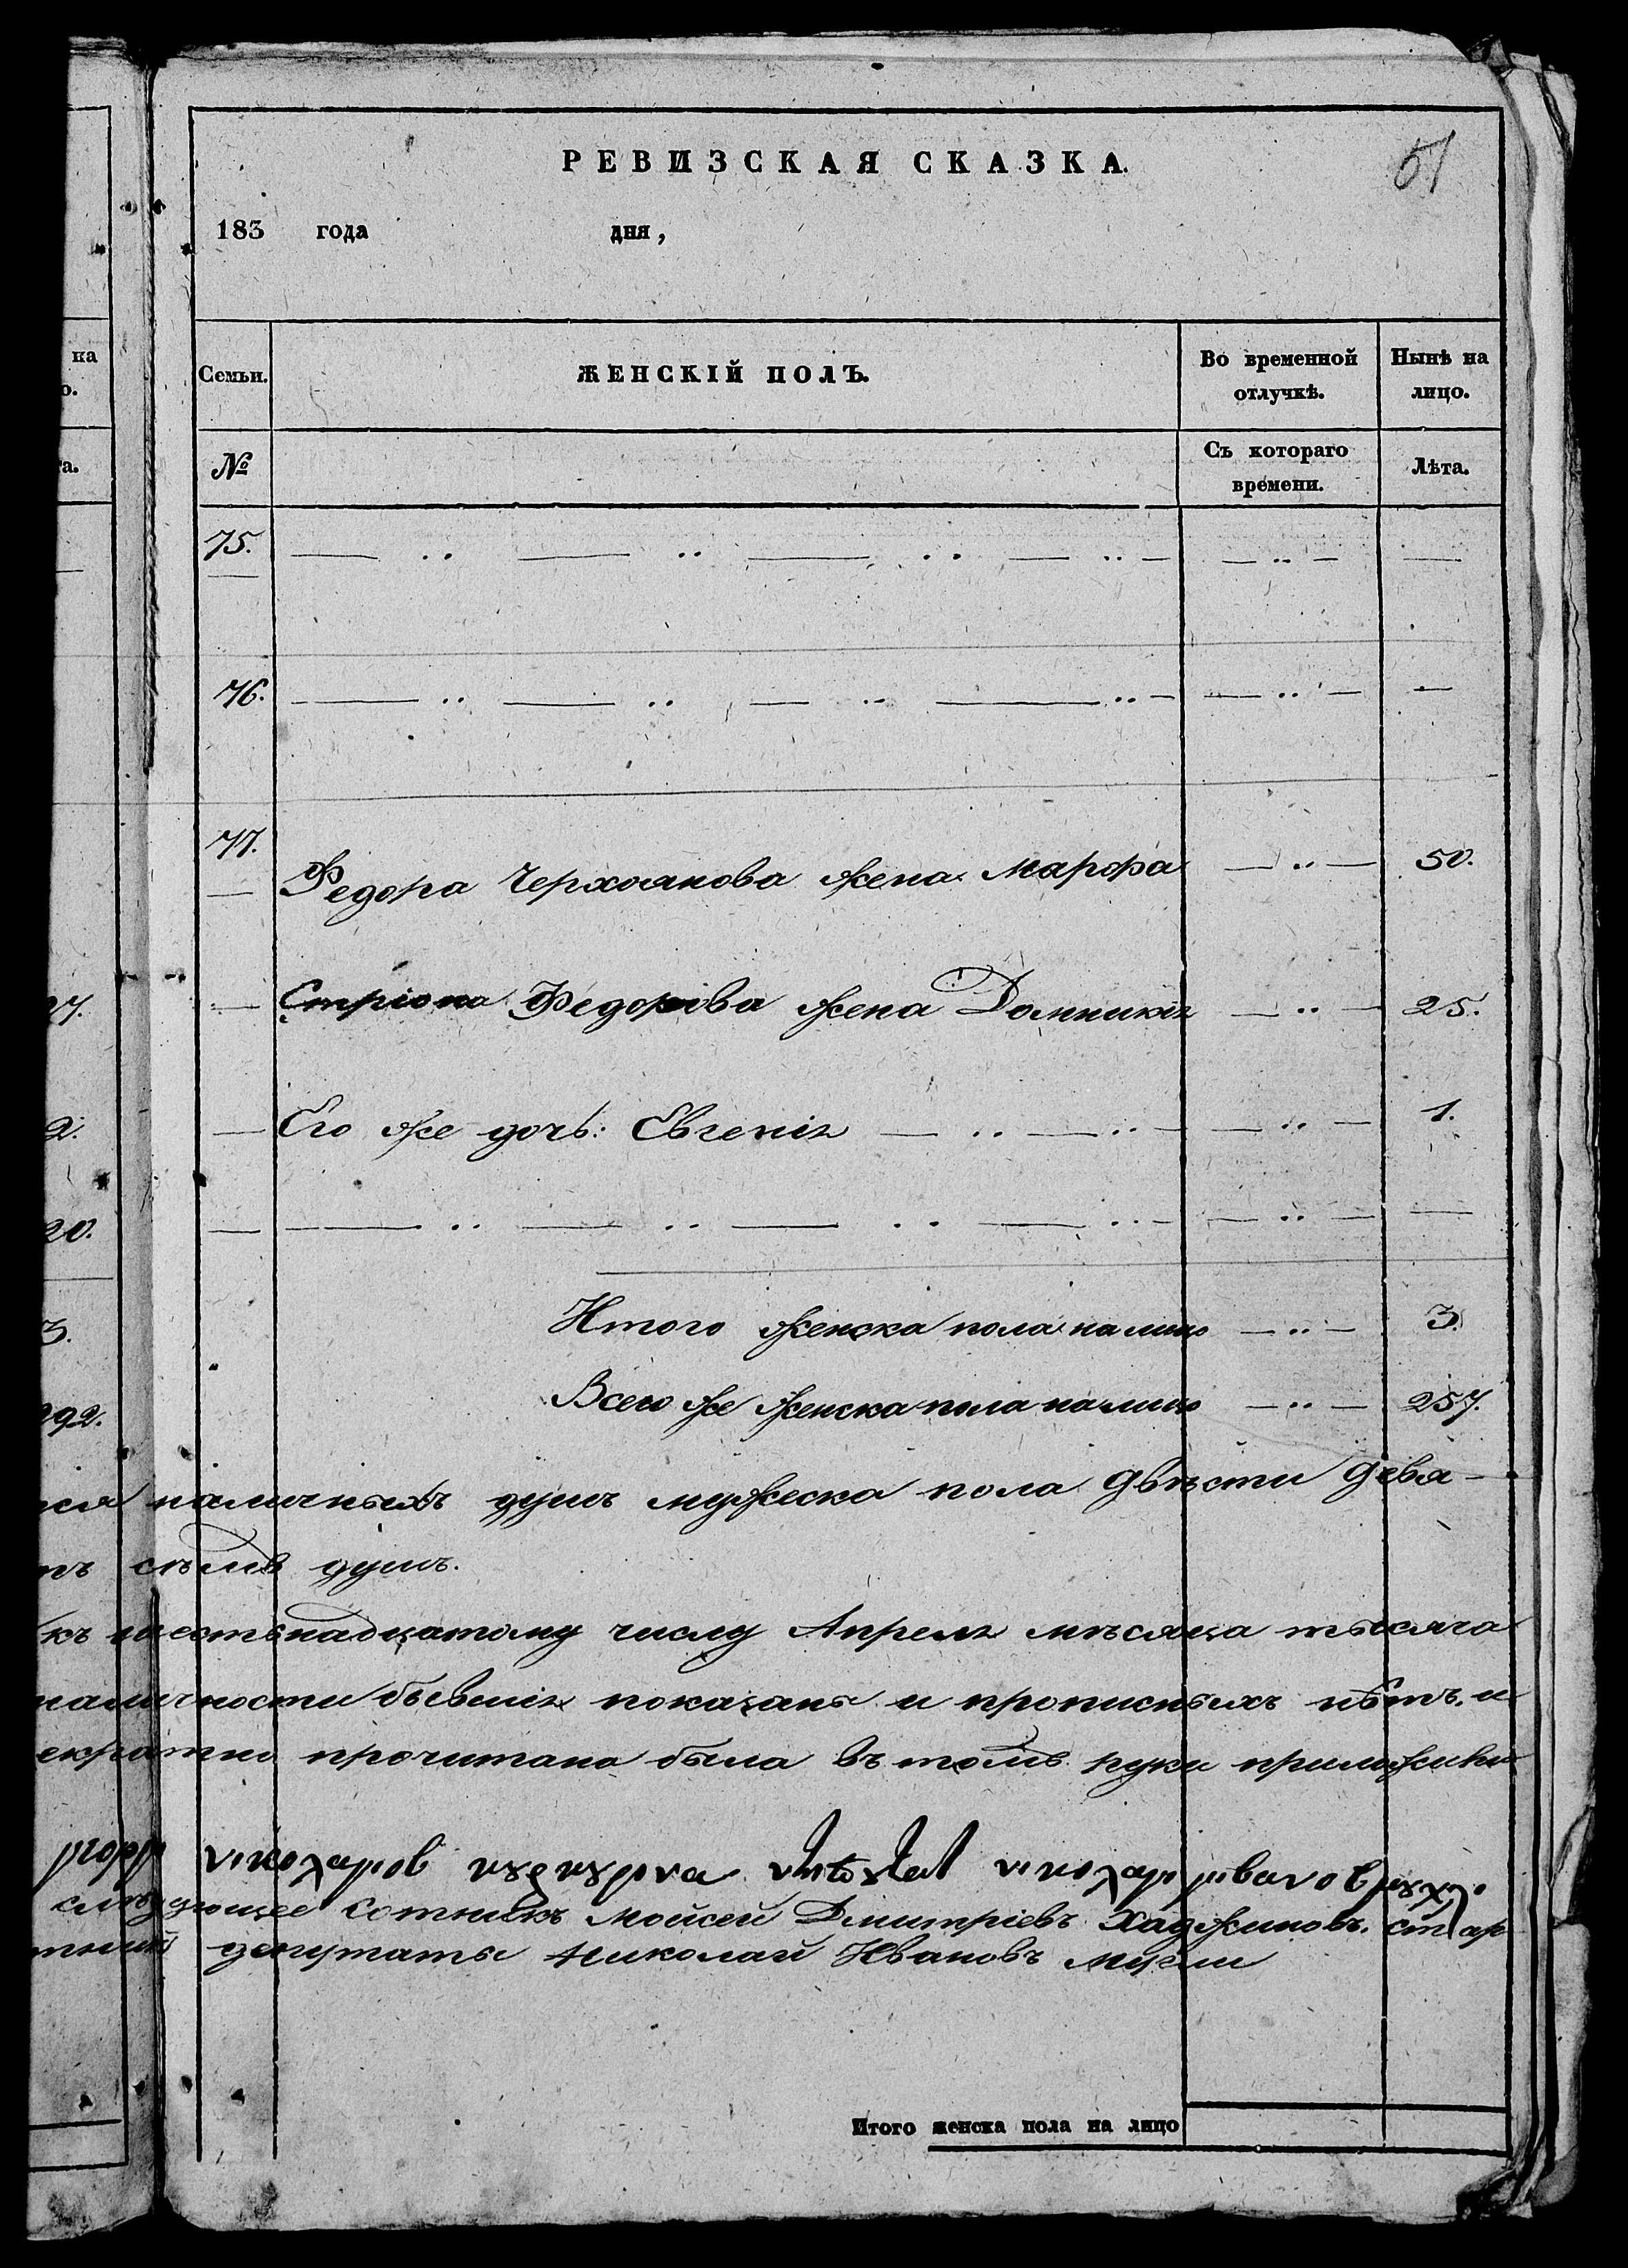 РЕВИЗСКАЯ СКАЗКА.
51
183 года дня,
Семьи. ЖЕНСКІЙ ПОЛЪ. Во временной отлучкѣ. Нынѣ на лицо.
№ Съ котораго времени. Лѣта.
75.
76.
77. Федора Черхоянова жена Марфа — 50.
— Стріона Федорова жена Домникія — 25.
— Его же дочь: Евгенія — 1.
Итого женска пола на лицо — 3.
Всего же женска пола на лицо — 257.
наличныхъ душъ мужеска пола двѣсти девя-
семь душъ.
къ шестьнадцатому числу Апреля мѣсяца тысяча
наличности бывшія показаны и прописныхъ нѣтъ. и
екратно прочитана была въ томъ руки приложили
слѣдующее Сотникъ Мойсей Дмитріевъ Хаджиновъ. стар
депутаты Николай Ивановъ
Итого женска пола на лицо
на
27.
2.
20.
3.
292.